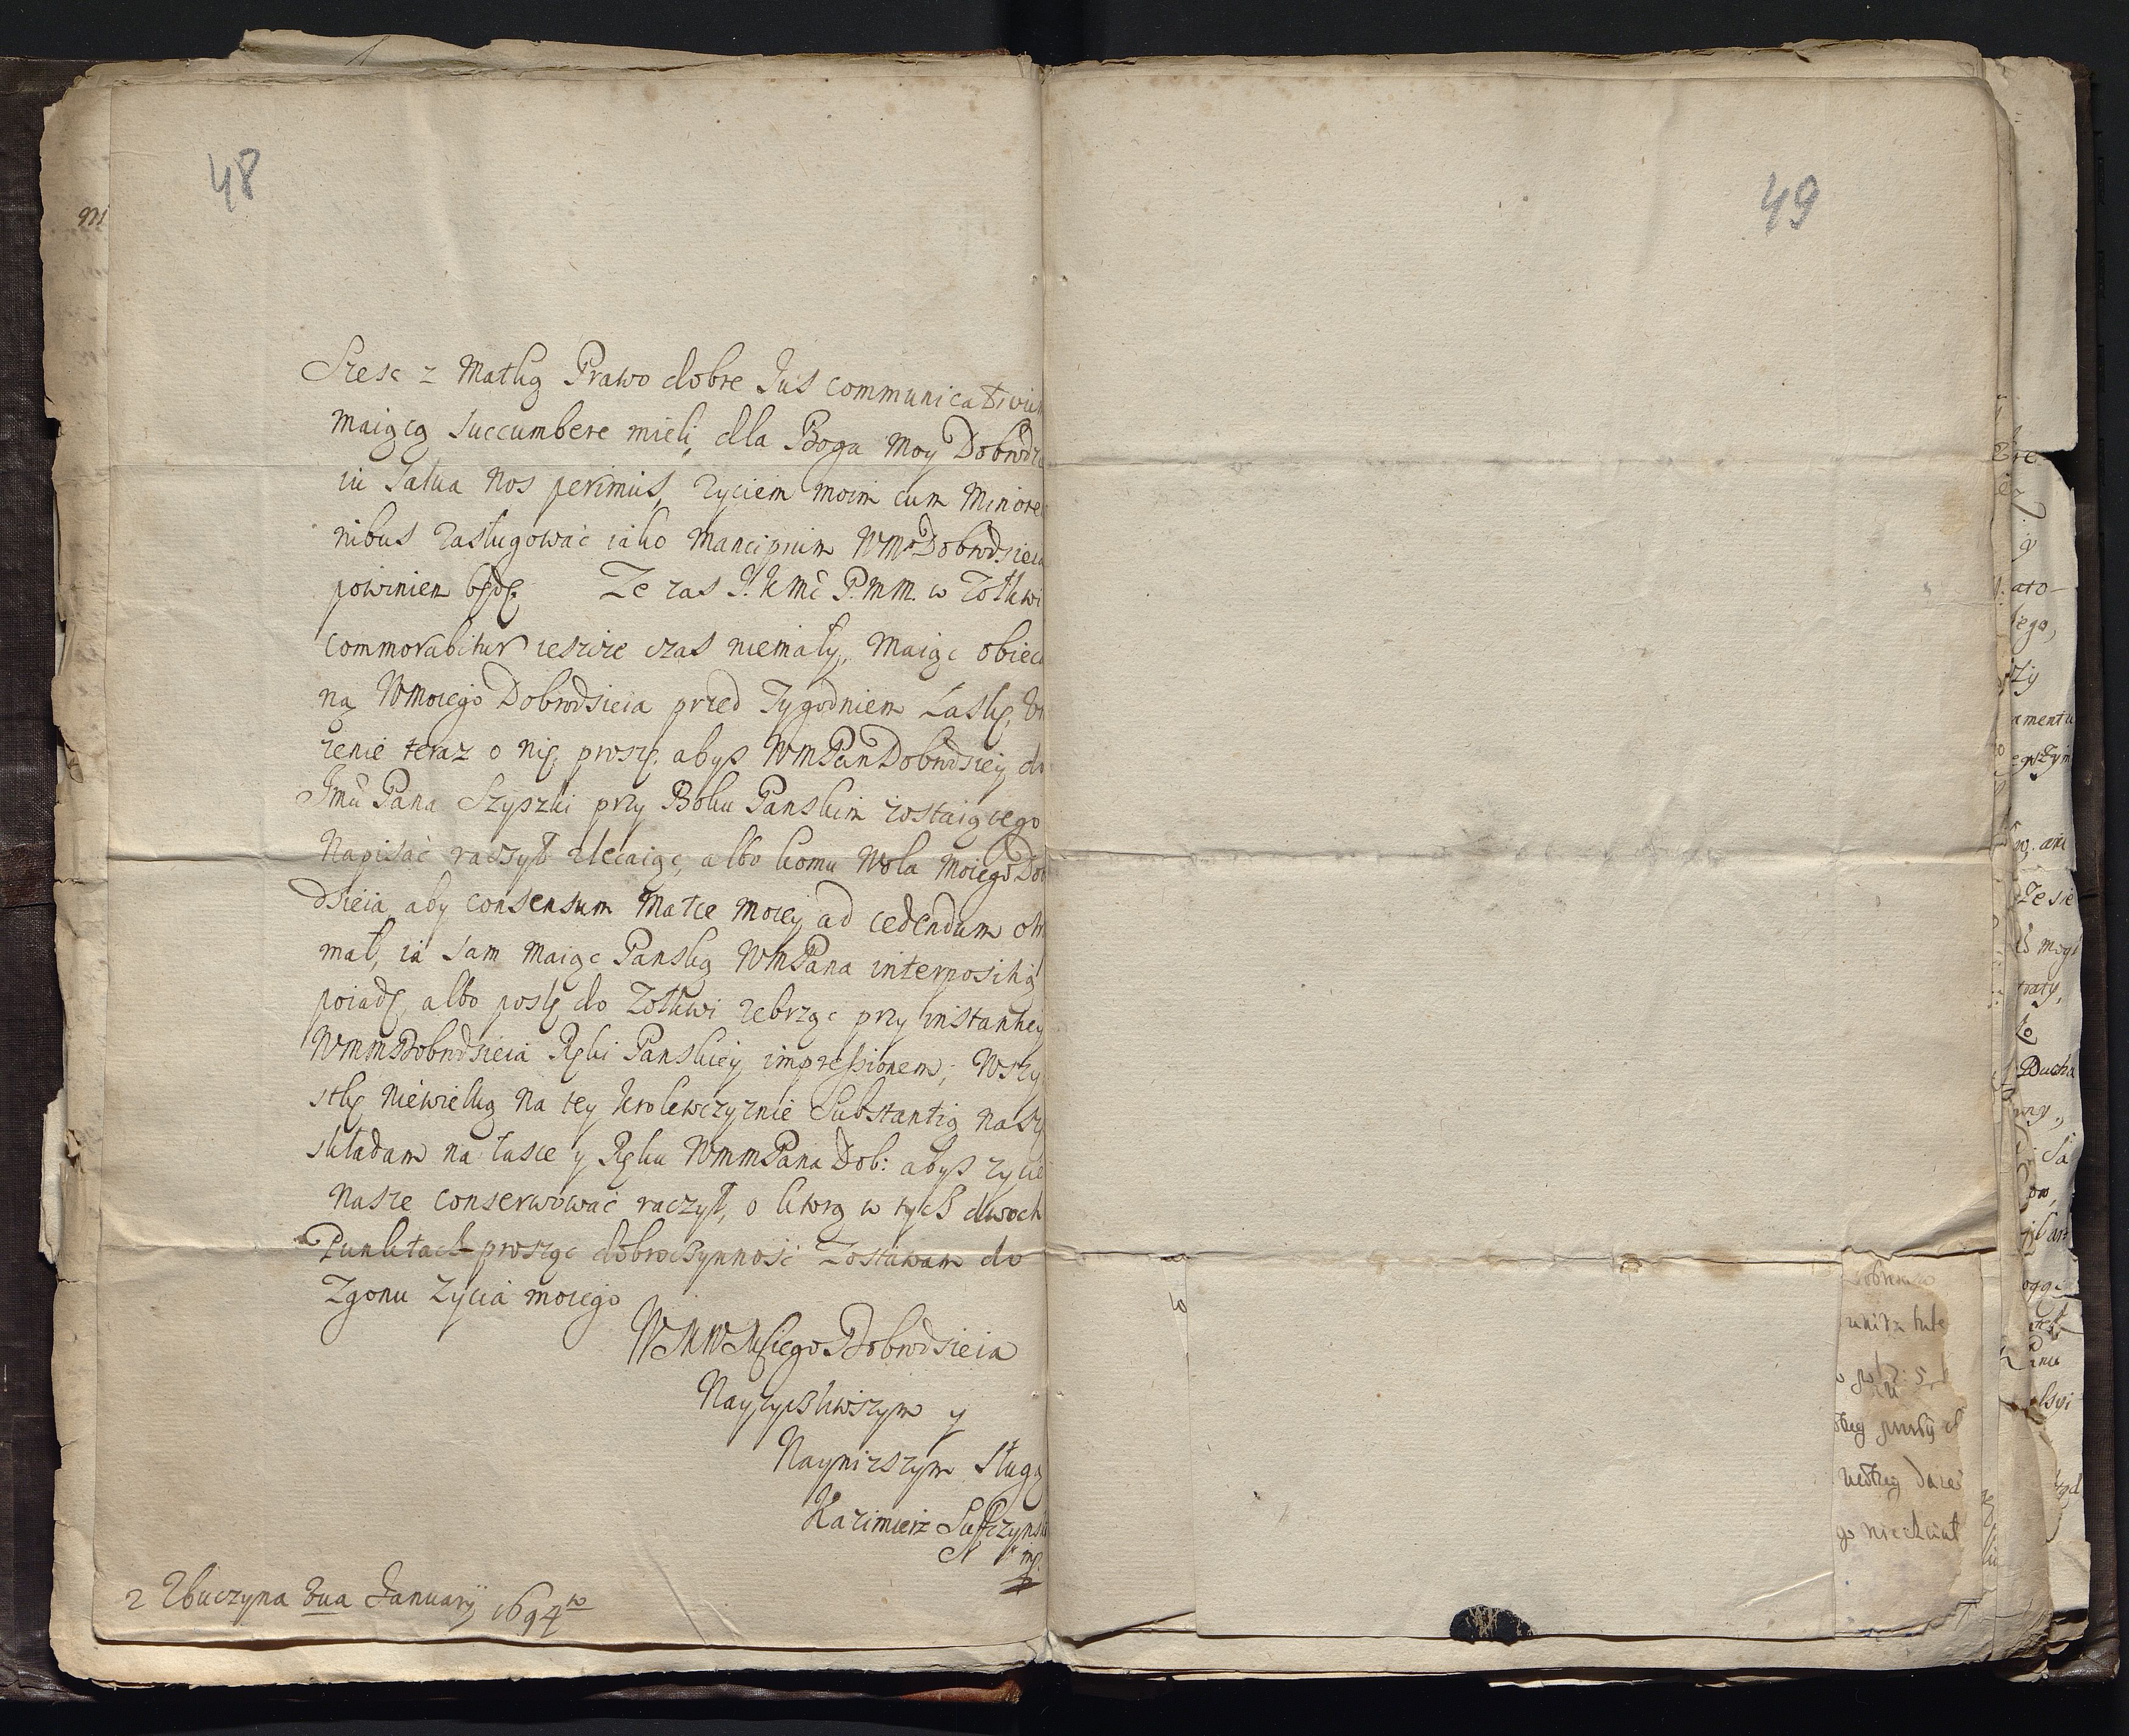 48
Szesc z Matką Prawo dobre Jus communicativum
maiącą succumbere mieli, dla Boga Moy Dobrodzi
iu Salva Nos perimus, zyciem moim cum Minore
nibus zasługować iako mancipium WMDobrodsieia
powinien będę. Ze zas J.K.Mć P.M.M. w Zołkwi
commorabitur ieszcze czas niemały, Maiąc obieca
ną WMoiego Dobrodsieia przed Tygodniem Łaskę,
zenie teraz o nię proszę abyś WMPan Dobrodsiey do
Jmci Pana Szyszki przy Boku Panskim zostaiącego
Napisać raczył zlecaiąc, albo komu Wola Moiego Dob
dsieia, aby consensum Matce moiey ad cedendum otr
mał, ia sam Maiąc Panską WMPana interpositią
poiadę albo poslę do Zołkwi zebrząc przy instantiey
WMMDobrodsieia Ręki Panskiey impressionem; Wszy
stkę niewielką na tey Krolewczyznie Substantią naszą
składam na łasce y Ręku WMMPana Dob: abyś zycie
nasze conserwować raczył, o ktorą w tych dwoch
Punktach prosząc dobroczynność Zostawam do
Zgonu Zycia moiego
WMMMsciego Dobrodsieia
Nayzyczliwszym y
Nayniższym sługą
Kazimierz Suffczynski
mp.
z Zbuczyna 2va January 1694to
49